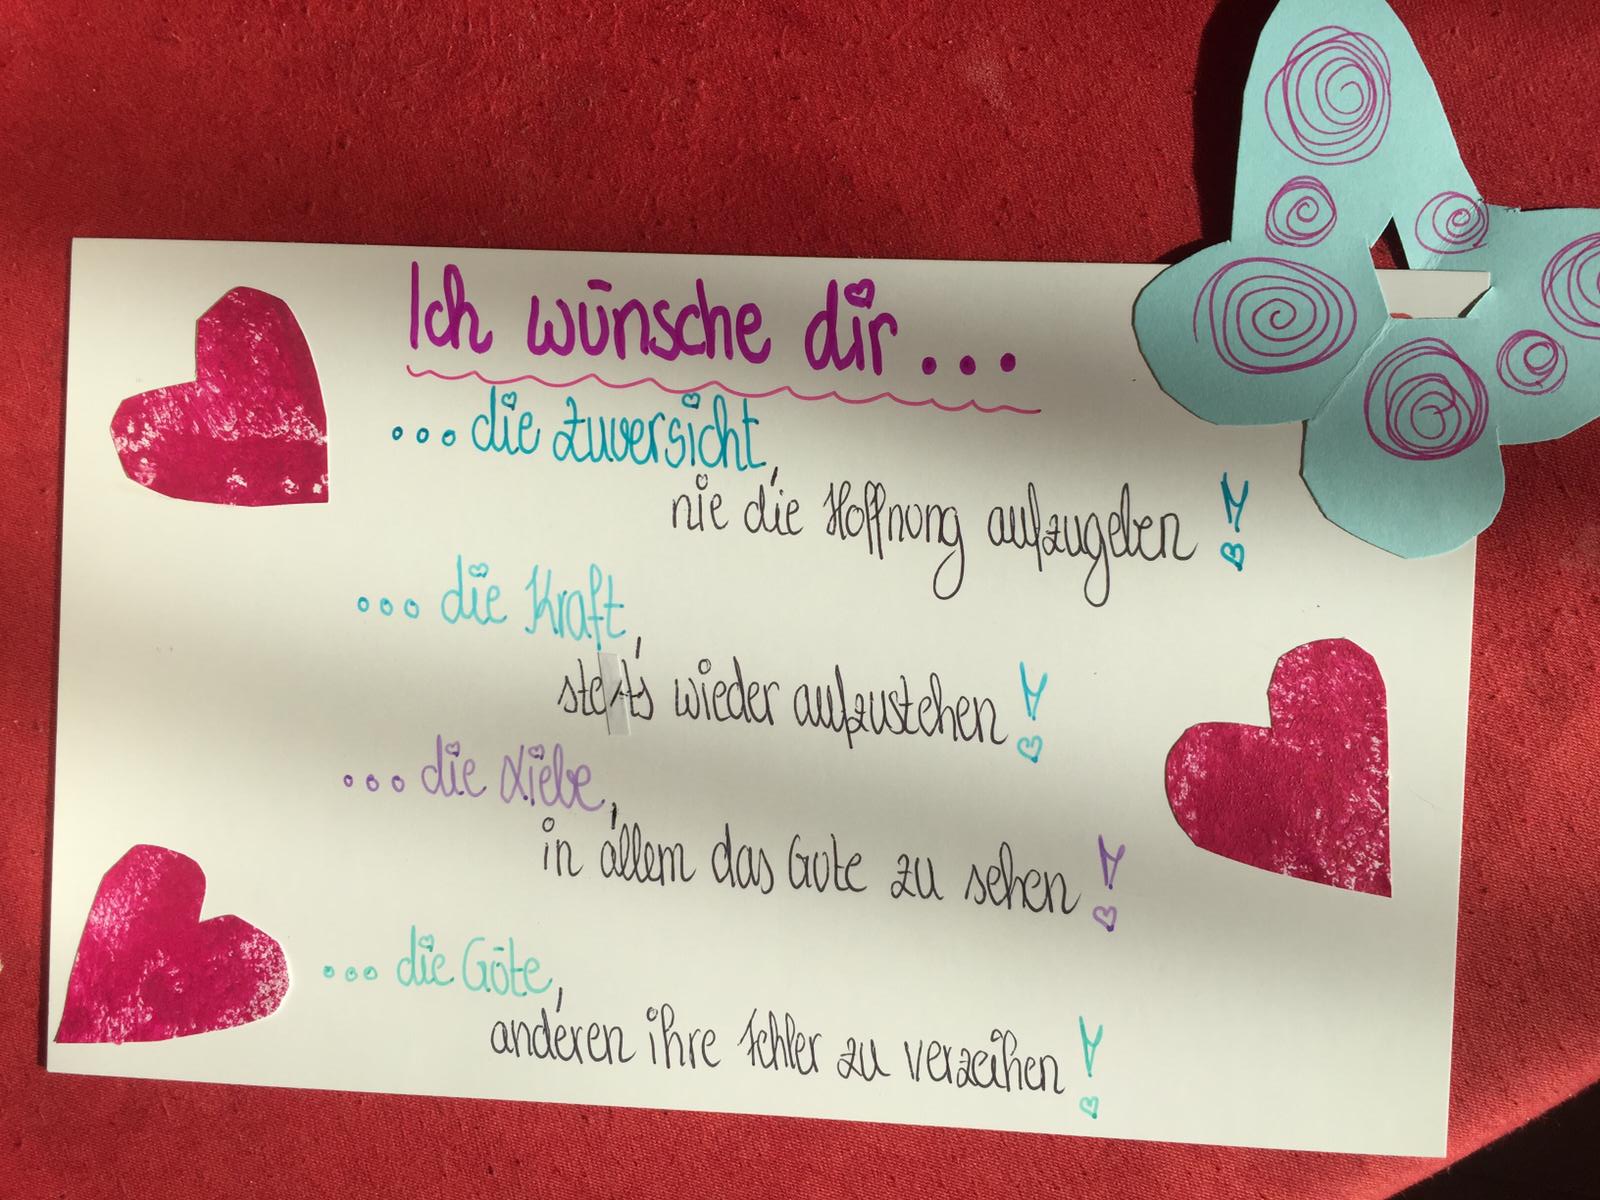 Ich wünsche dir...
...die Zuversicht,
nie die Hoffnung aufzugeben!
...die Kraft,
stets wieder aufzustehen!
...die Liebe,
in allem das Gute zu sehen!
...die Güte,
anderen ihre Fehler zu verzeihen!